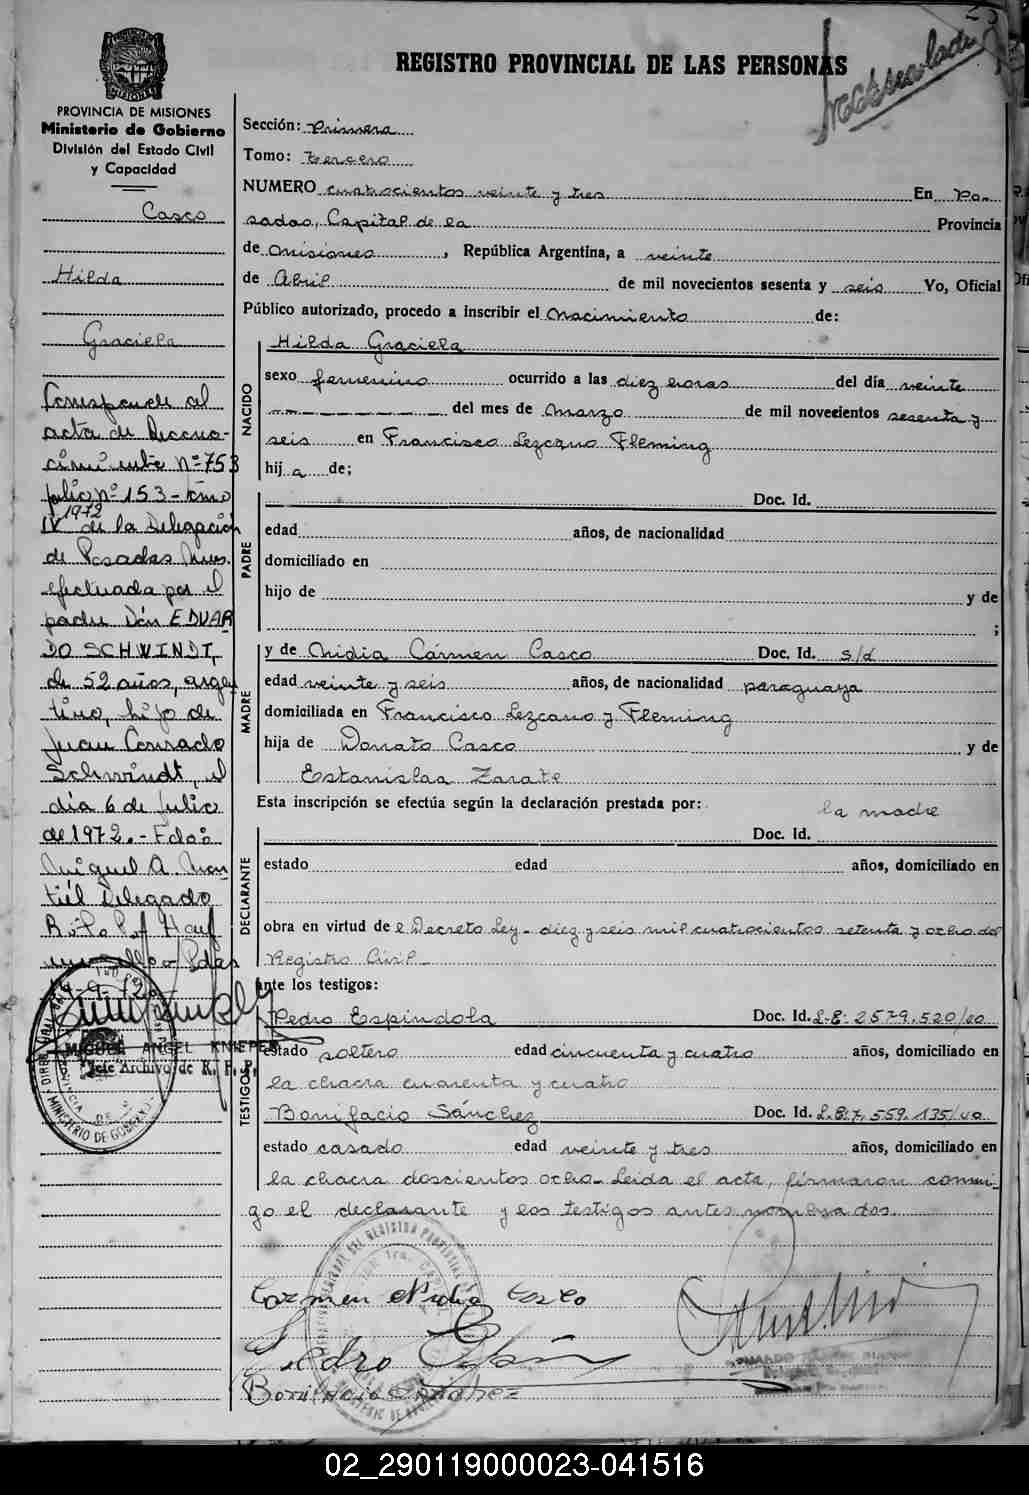 REGISTRO PROVINCIAL DE LAS PERSONAS
PROVINCIA DE MISIONES
Ministerio de Gobierno
División del Estado Civil
y Capacidad
Casco
Hilda
Graciela
Corresponde al
acta de Recono-
cimiento Nº 753
folio nº 153 - tomo
1972
IV de la Delegación
de Posadas Mnes.
efectuada por el
padre Don EDUAR
DO SCHWINDT,
de 52 años, argen
tino, hijo de
Juan Conrado
Schwindt, el
día 6 de Julio
de 1972.- Fdo:
Miguel A. Mon
tiel Delegado
9-9-72
MIGUEL ANGEL KNIEPER
Jefe Archivo de R. P. P.
MINISTERIO DE GOBIERNO
Sección: Primera
Tomo: tercero
NUMERO cuatrocientos veinte y tres En Po-
sadas, Capital de la Provincia
de Misiones, República Argentina, a veinte
de Abril de mil novecientos sesenta y seis Yo, Oficial
Público autorizado, procedo a inscribir el Nacimiento de:
NACIDO
Hilda Graciela
sexo femenino ocurrido a las diez horas del día veinte
del mes de Marzo de mil novecientos sesenta y
seis en Francisco Lezcano Fleming
hija de;
PADRE
Doc. Id.
edad años, de nacionalidad
domiciliado en
hijo de y de
;
MADRE
y de Nidia Cármen Casco Doc. Id. s/d
edad veinte y seis años, de nacionalidad paraguaya
domiciliada en Francisco Lezcano y Fleming
hija de Donato Casco y de
Estanislaa Zarate
Esta inscripción se efectúa según la declaración prestada por: la madre
DECLARANTE
Doc. Id.
estado edad años, domiciliado en
obra en virtud de el Decreto Ley - diez y seis mil cuatrocientos setenta y ocho del
Registro Civil -
ante los testigos:
TESTIGOS
Pedro Espindola Doc. Id. L.E: 2579.520/00
estado soltero edad cincuenta y cuatro años, domiciliado en
la chacra cuarenta y cuatro
Bonifacio Sánchez Doc. Id. L.E: 7.559.135/00
estado casado edad veinte y tres años, domiciliado en
la chacra doscientos ocho - Leida el acta, firmaron conmi-
go el declarante y los testigos antes nombrados.
Carmen Nidia Casco
Pedro Espin
Bonifacio Sanchez
02_290119000023-041516